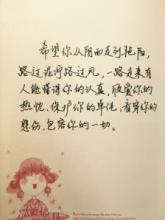 希望你从阴雨走到艳阳，
路过泥泞路过风，一路走来有
人能懂得你的认真，欣赏你的
热忱，保护你的卑怯，看穿你的
悲伤，包容你的一切。